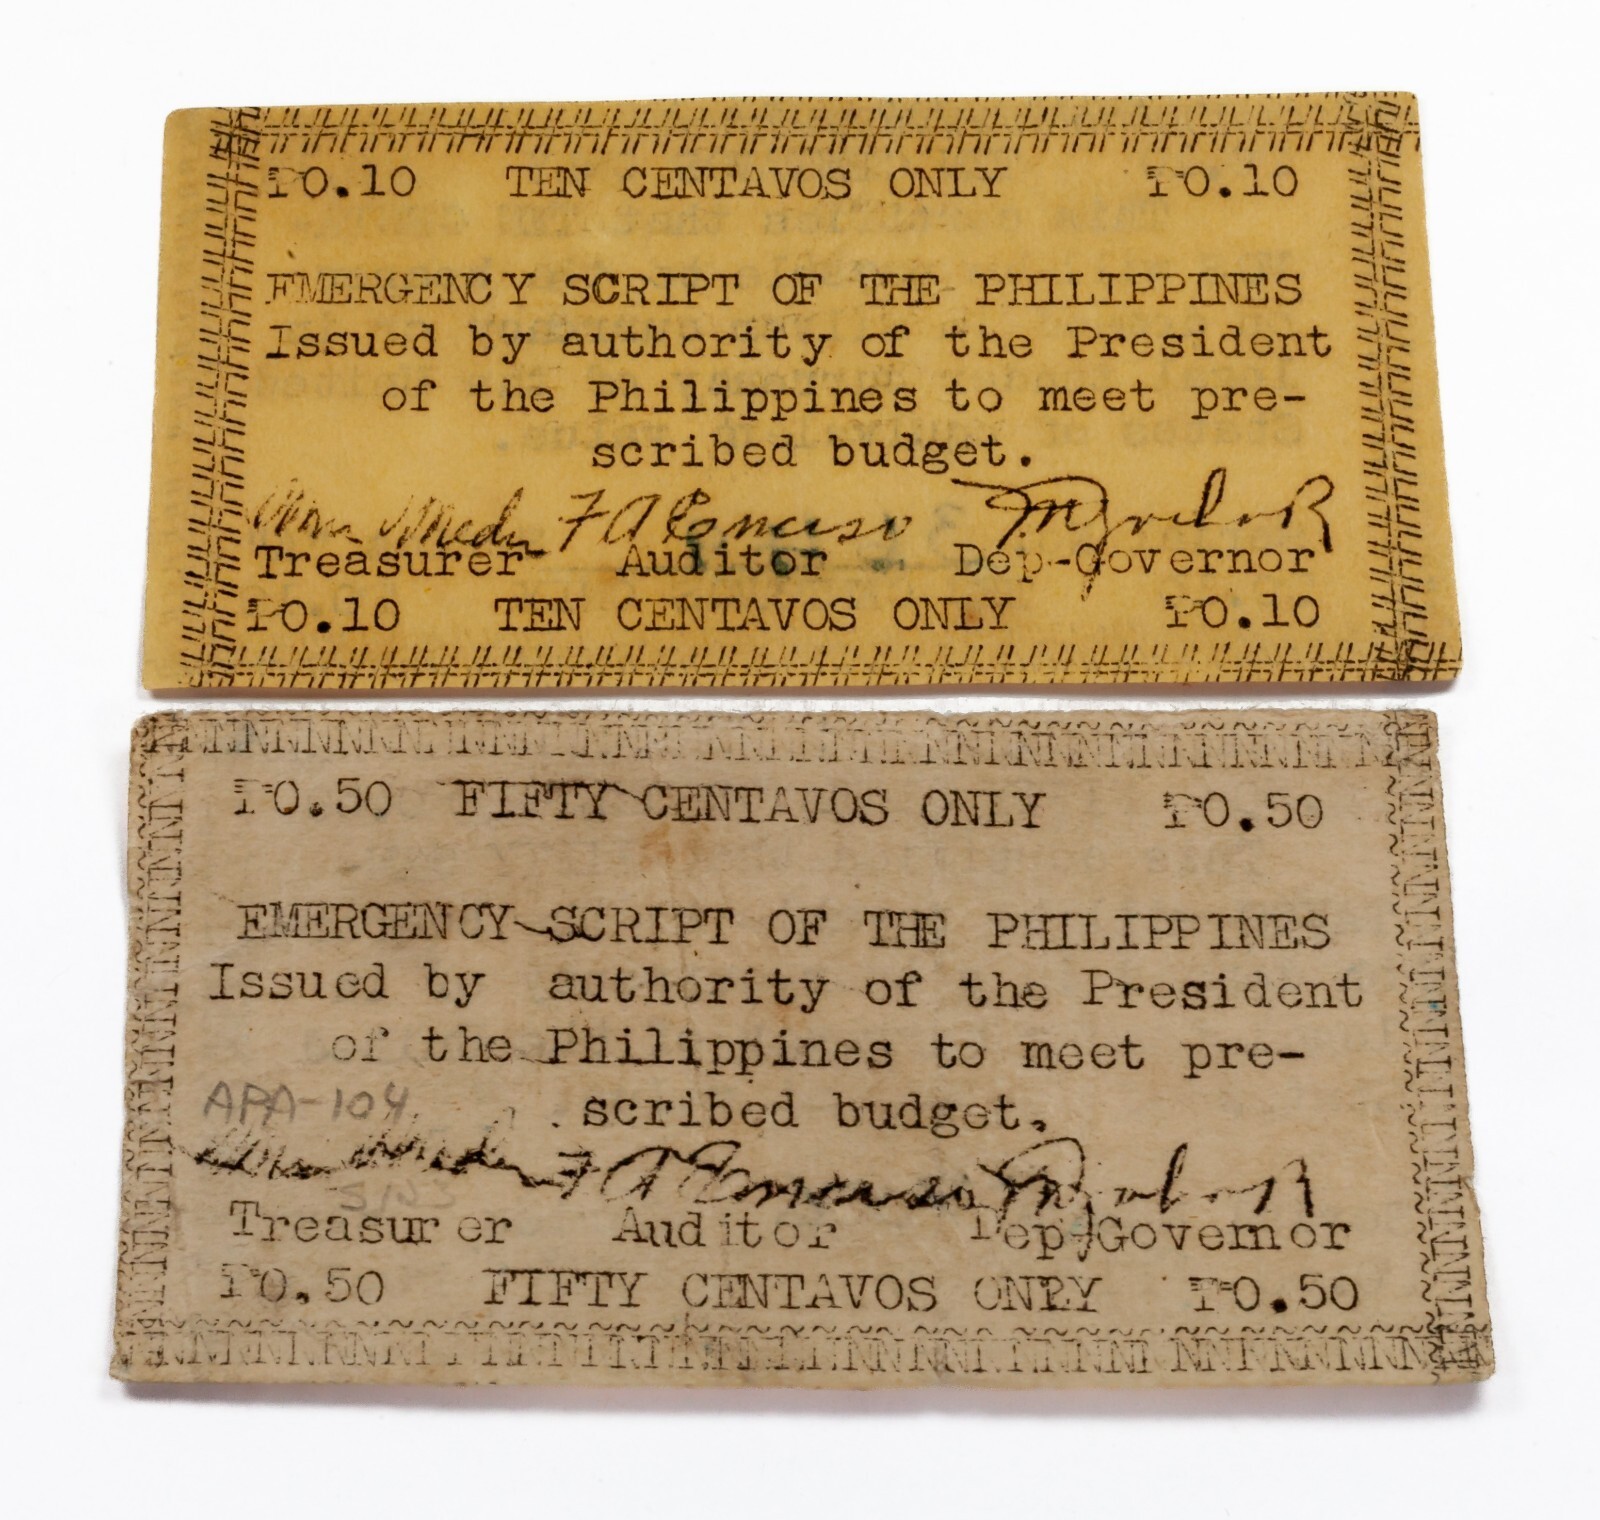 ₱0.10 TEN CENTAVOS ONLY ₱0.10
EMERGENCY SCRIPT OF THE PHILIPPINES
Issued by authority of the President
of the Philippines to meet pre-
scribed budget.
F A
Treasurer Auditor Dep-Governor
₱0.10 TEN CENTAVOS ONLY ₱0.10
₱0.50 FIFTY CENTAVOS ONLY ₱0.50
EMERGENCY SCRIPT OF THE PHILIPPINES
Issued by authority of the President
of the Philippines to meet pre-
APA-104
scribed budget.
F A
Treasurer Auditor Dep-Governor
₱0.50 FIFTY CENTAVOS ONLY ₱0.50